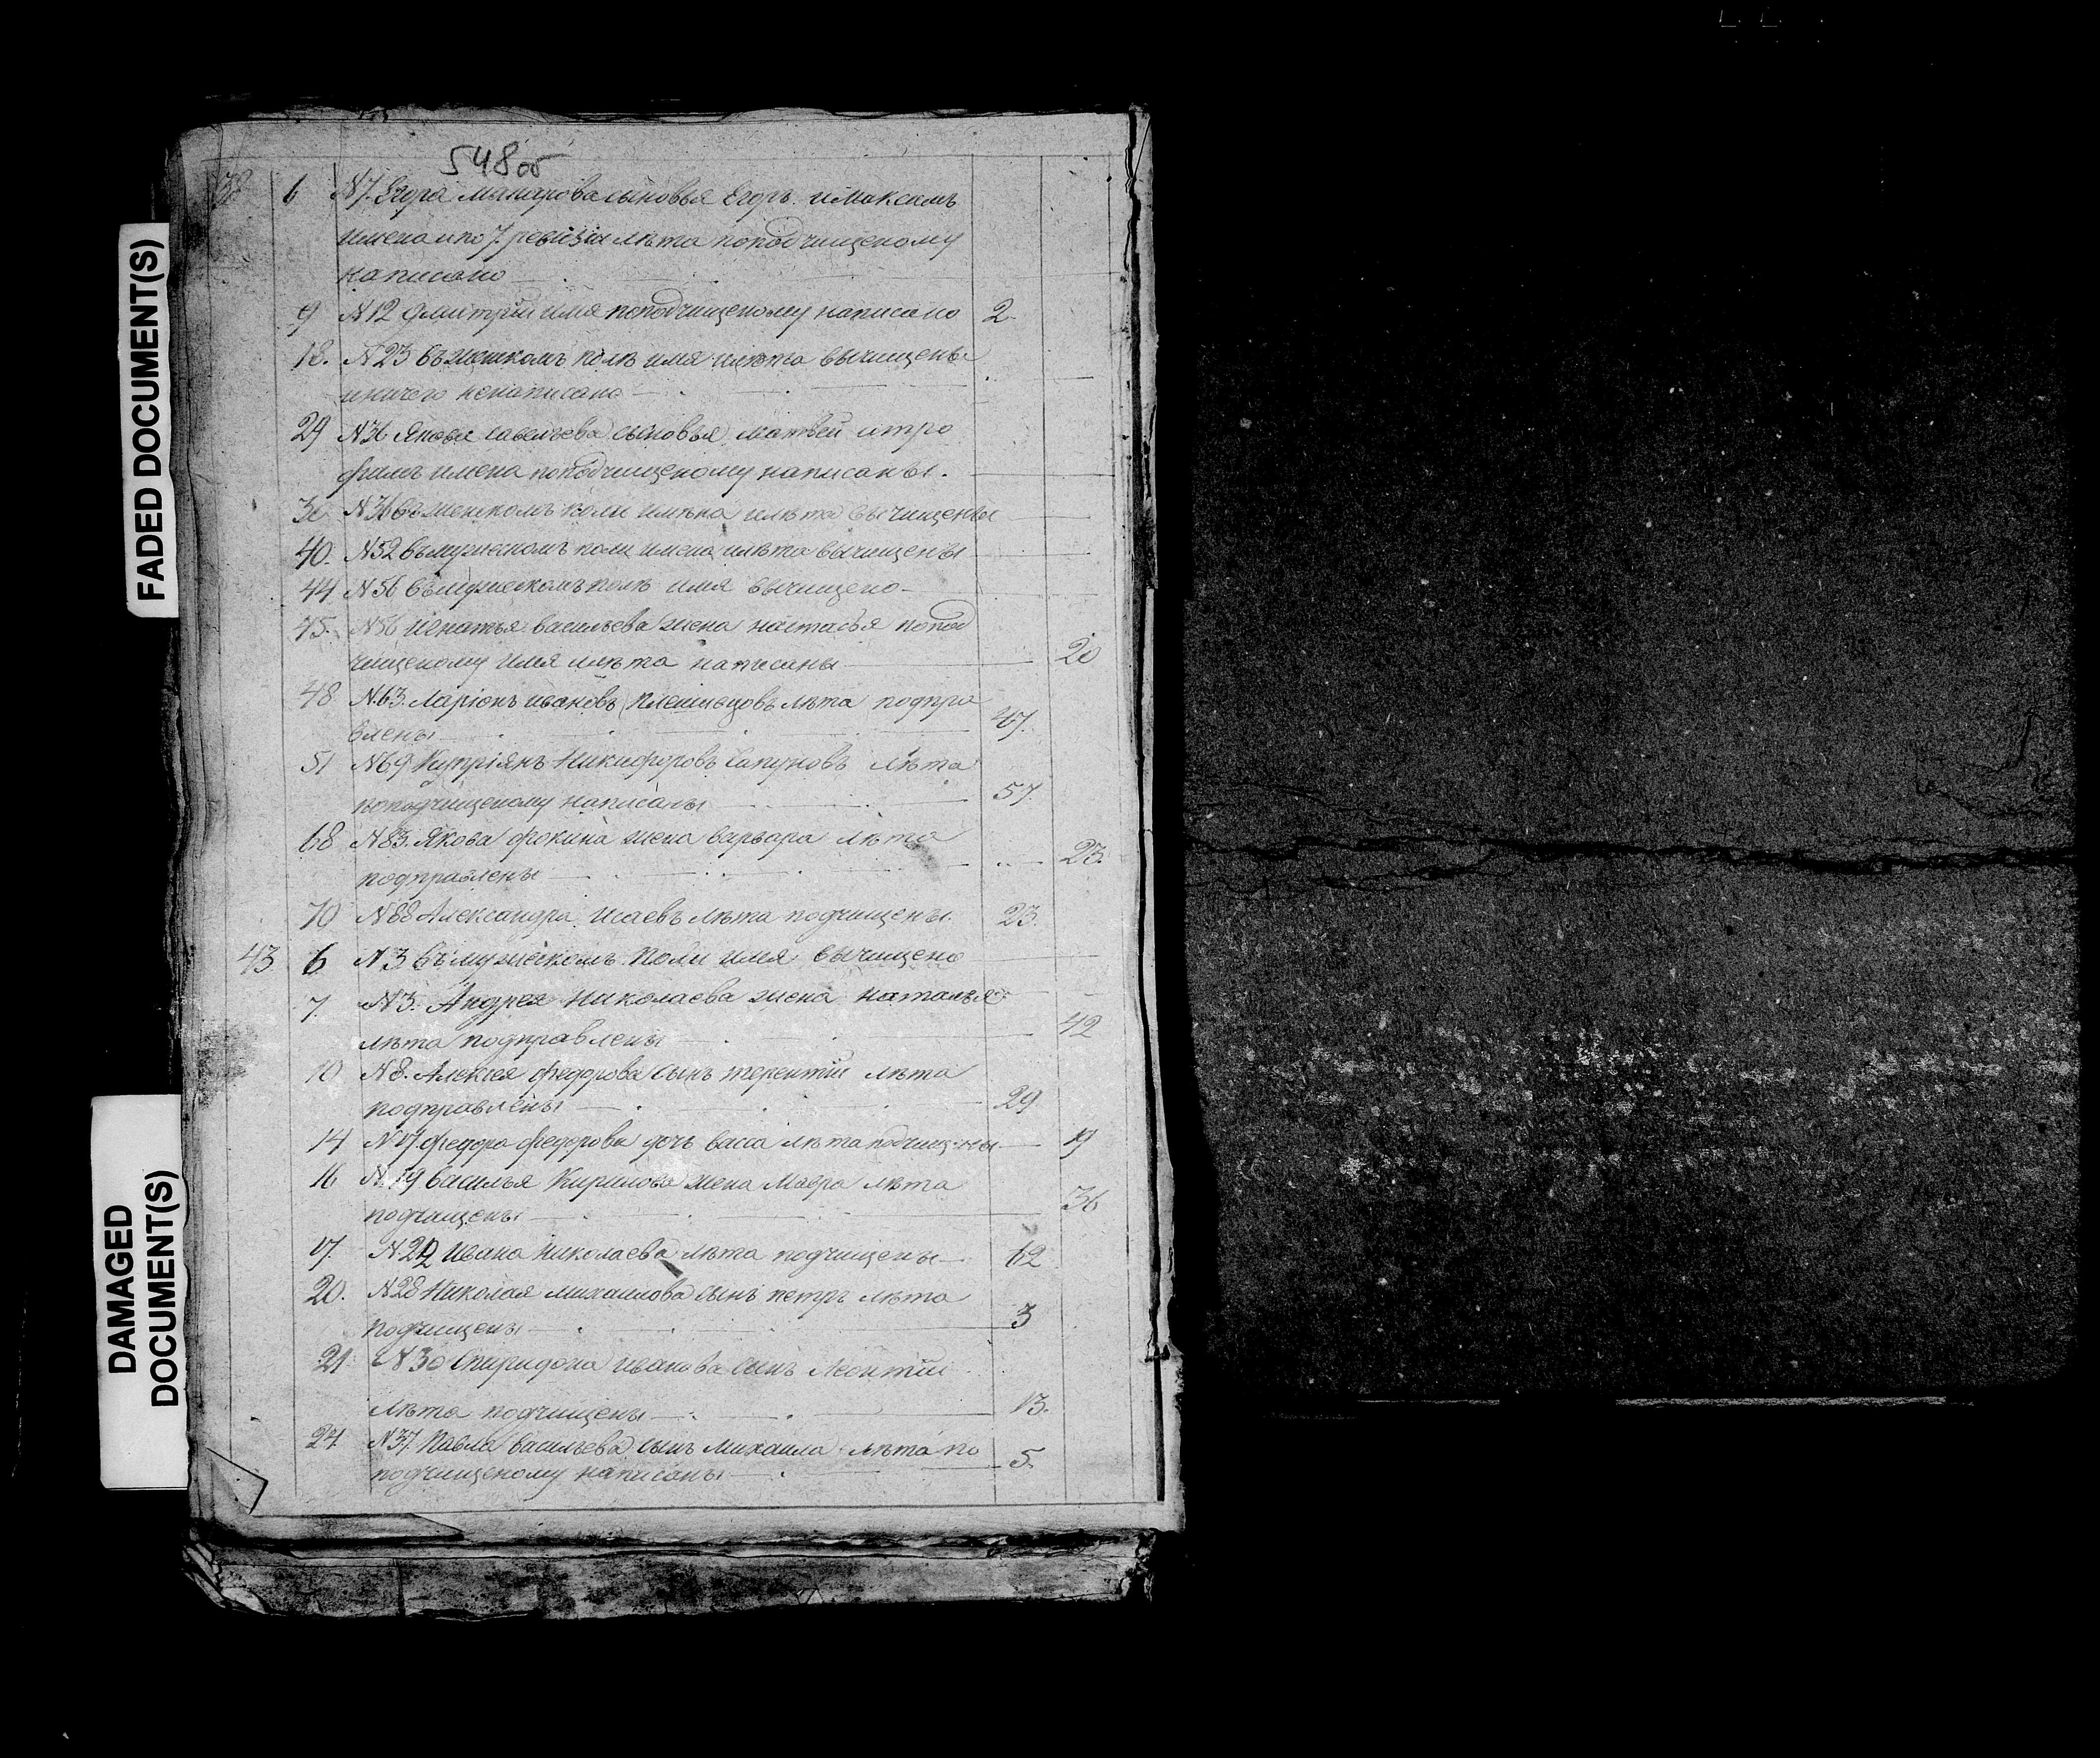 548об
38 6 N7. Егора Макарова сыновья Егоръ и Максимъ
имена и по 7. ревизiи лѣта по подчищеному
написано
9 N12 Дмитрiй имя по подчищеному написано 2
18. N23 въ женскомъ полѣ имя и лѣта вычищены
и ничего ненаписано
29 N36 Якова Савельева сыновья Матвей и Тро
фимъ имена по подчищеному написаны.
30 N36 въ женскомъ поли имена и лѣта вычищены
40. N52 въ мужескомъ поли имена и лѣта вычищены
44 N56 въ мужескомъ полѣ имя вычищено
45. N56 Игнатья Васильева жена Настасья по под
чищеному имя и лѣта написаны 20
48 N63. Ларiонъ Ивановъ лѣта подпра
влены 47.
51 N69 Купрiянъ Никифоровъ Сапуновъ лѣта
по подчищеному написаны 57.
68 N83. Якова Фокина жена Варвара лѣта
подправлены 23.
70 N88 Александра Исаевъ лѣта подчищены 23.
43 6 N3 въ мужескомъ поли имя вычищено
7. N3. Андрея Николаева жена Наталья
лѣта подправлены 42
10 N8. Алексея Федорова сынъ Терентiй лѣта
подправлены 29
14 N17. Федора Федорова дочь Васса лѣта подчищены 19
16 N19 Василья Кирилова жена Мавра лѣта
подчищены 36
17. N22 Ивана Николаева лѣта подчищены 62
20. N28 Николая Михаилова сынъ Петръ лѣта
подчищены 3
21 N30 Спиридона Иванова сынъ Леонтiй
лѣта подчищены 13.
24 N37. Павла Васильева сынъ Михаила лѣта по
подчищеному написаны 5.
FADED DOCUMENT(S)
DAMAGED
DOCUMENT(S)